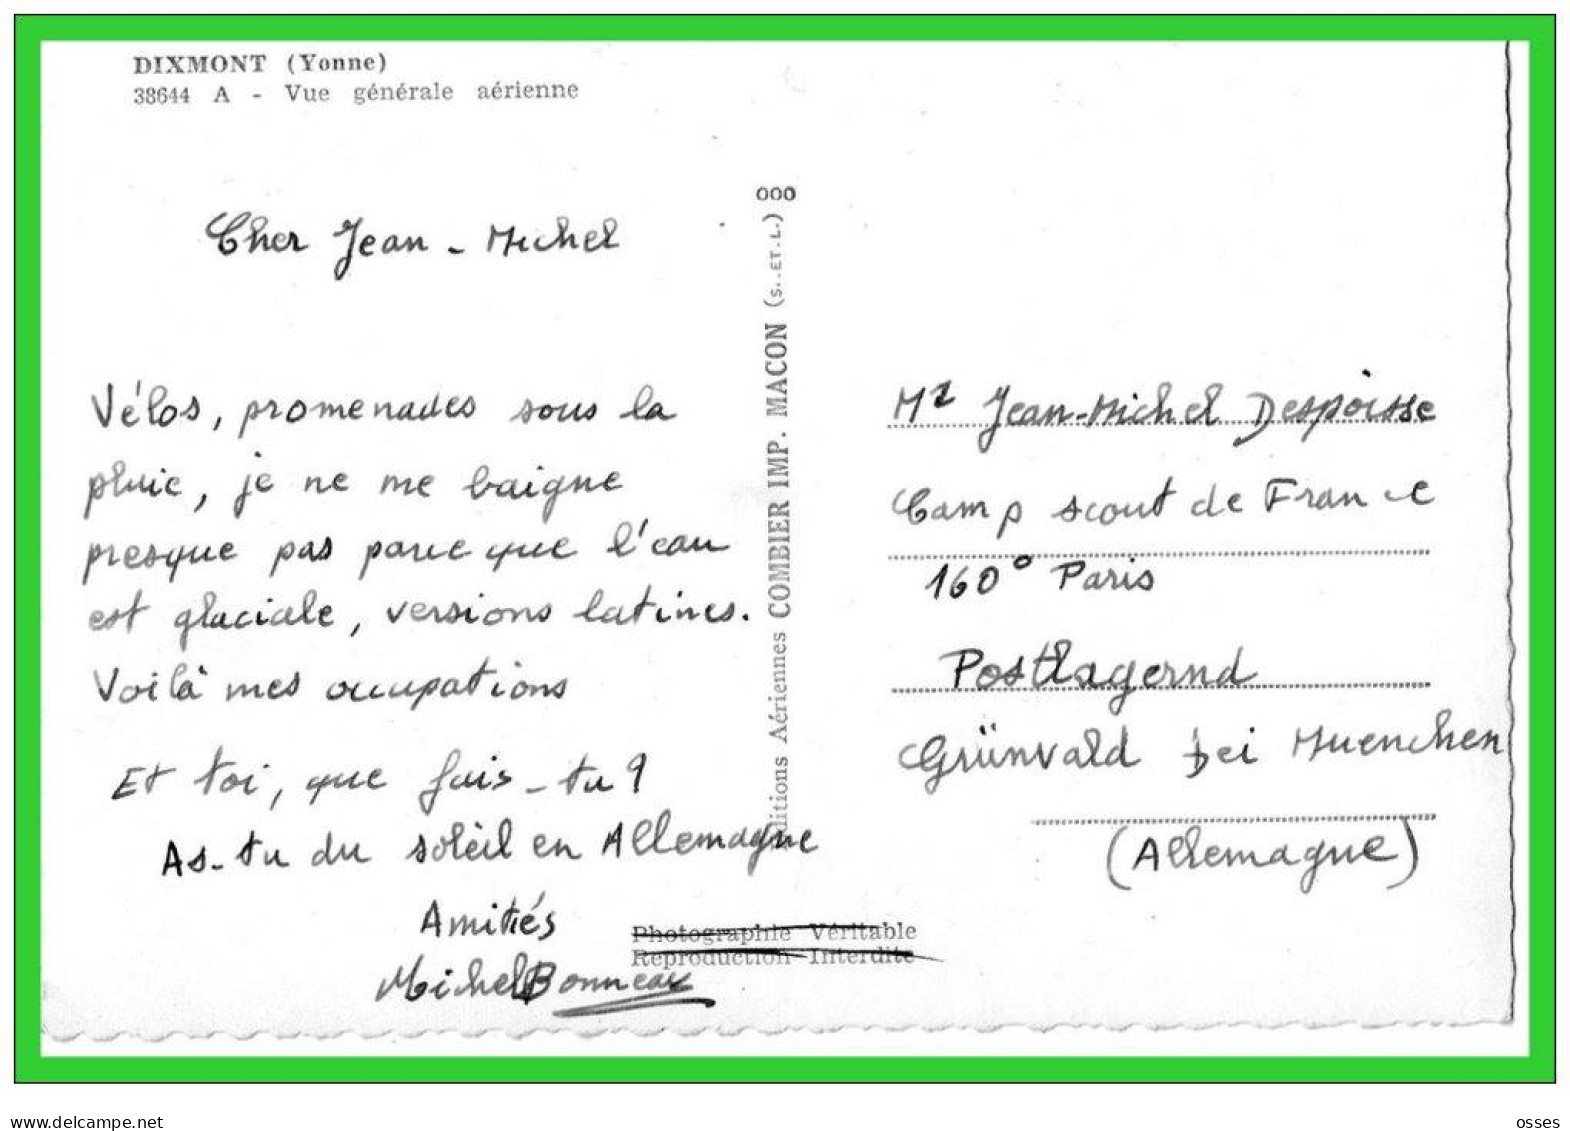 DIXMONT (Yonne)
38644 A - Vue générale aérienne
Cher Jean-Michel
Vélos, promenades sous la
pluie, je ne me baigne
presque pas parce que l'eau
est glaciale, versions latines.
Voilà mes occupations
Et toi, que fais-tu?
As-tu du soleil en Allemagne
Amitiés
Michel Bonneau
Photographie Véritable
Reproduction Interdite
Editions Aériennes COMBIER IMP. MACON (S.-ET-L.) 000
Mr Jean-Michel Despoisse
Camp scout de France
160° Paris
Postlagernd
Grünvald bei Muenchen
(Allemagne)
www.delcampe.net
osses